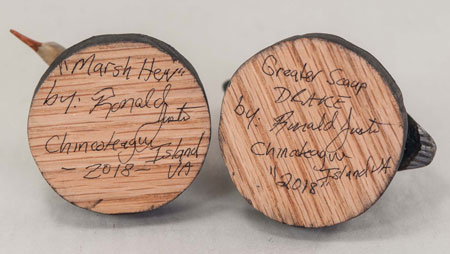 "Marsh Hen"
by: Ronald Justis
Chincoteague
Island
- 2018 - VA
Greater Scaup
DRAKE
by: Ronald Justis
Chincoteague
Island VA
"2018"